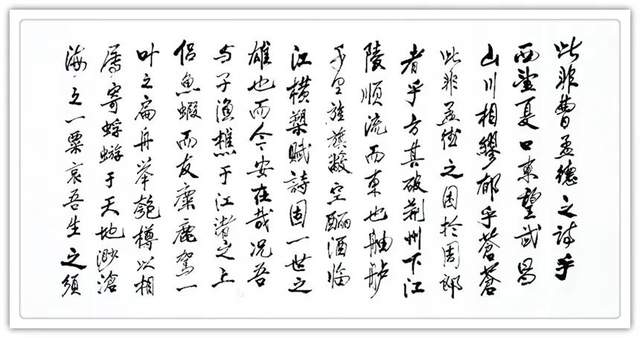 此非曹孟德之詩乎
西望夏口東望武昌
山川相繆郁乎蒼蒼
此非孟德之困於周郎
者乎方其破荊州下江
陵順流而東也舳舻
千里旌旗蔽空釃酒临
江横槊賦詩固一世之
雄也而今安在哉况吾
与子漁樵于江渚之上
侣魚蝦而友麋鹿駕一
叶之扁舟举匏樽以相
属寄蜉蝣于天地渺滄
海之一粟哀吾生之须